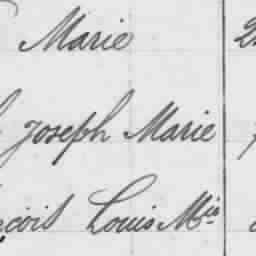 Marie
Joseph Marie
çois Louis Mie